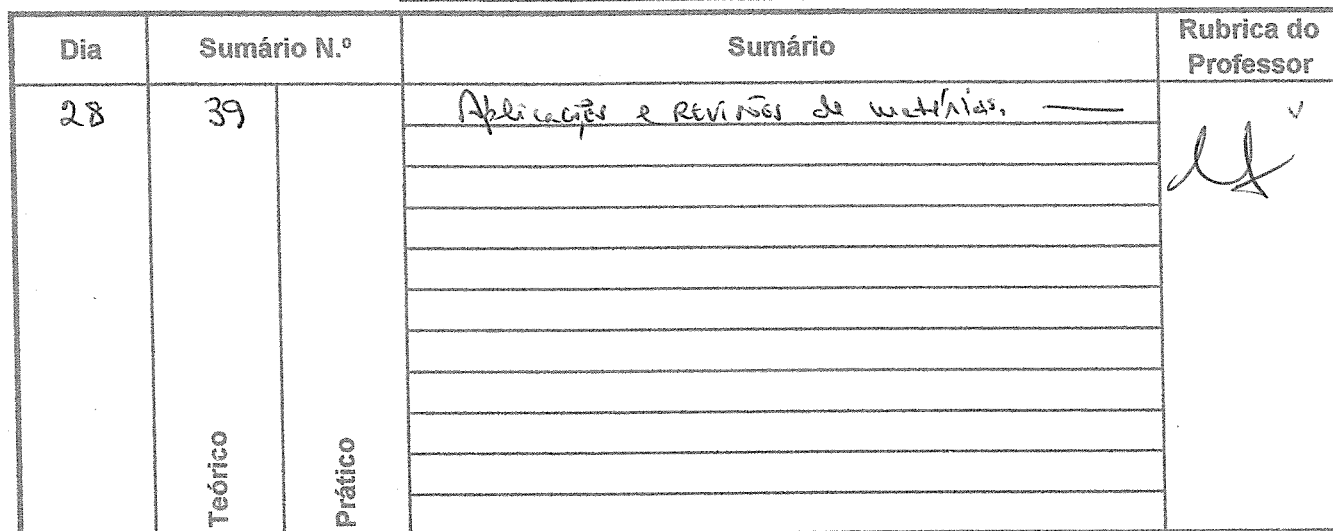 Dia Sumário N.º Sumário Rubrica do Professor
28 39 Aplicações e REVISÕES de matérias.
Teórico Prático